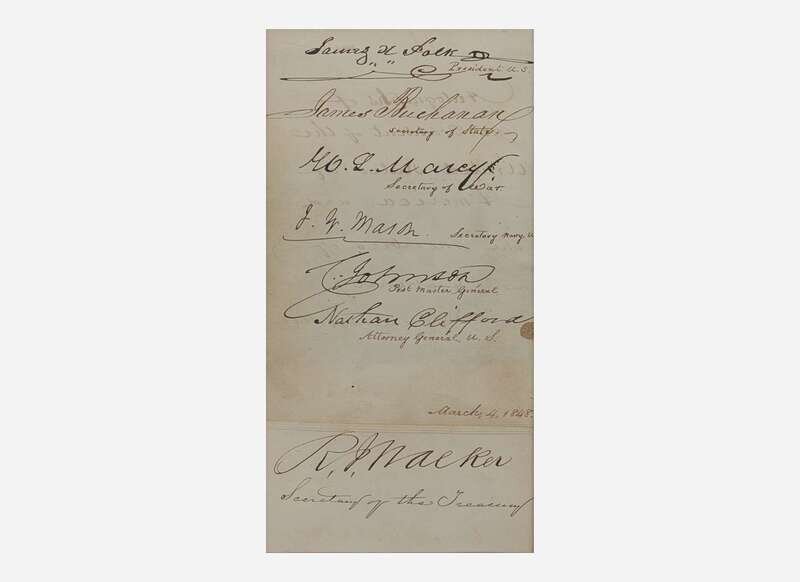 James K Polk
President U.S.
James Buchanan
Secretary of State
W. L. Marcy
Secretary of War
J. Y. Mason
Secretary Navy U
C. Johnson
Post Master General
Nathan Clifford
Attorney General U. S.
March, 4, 1848.
R. J. Walker
Secretary of the Treasury